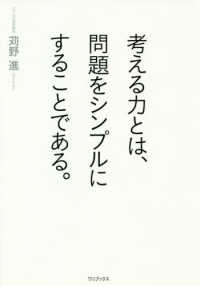 考える力とは、
問題をシンプルに
することである。
苅野 進
ワニブックス